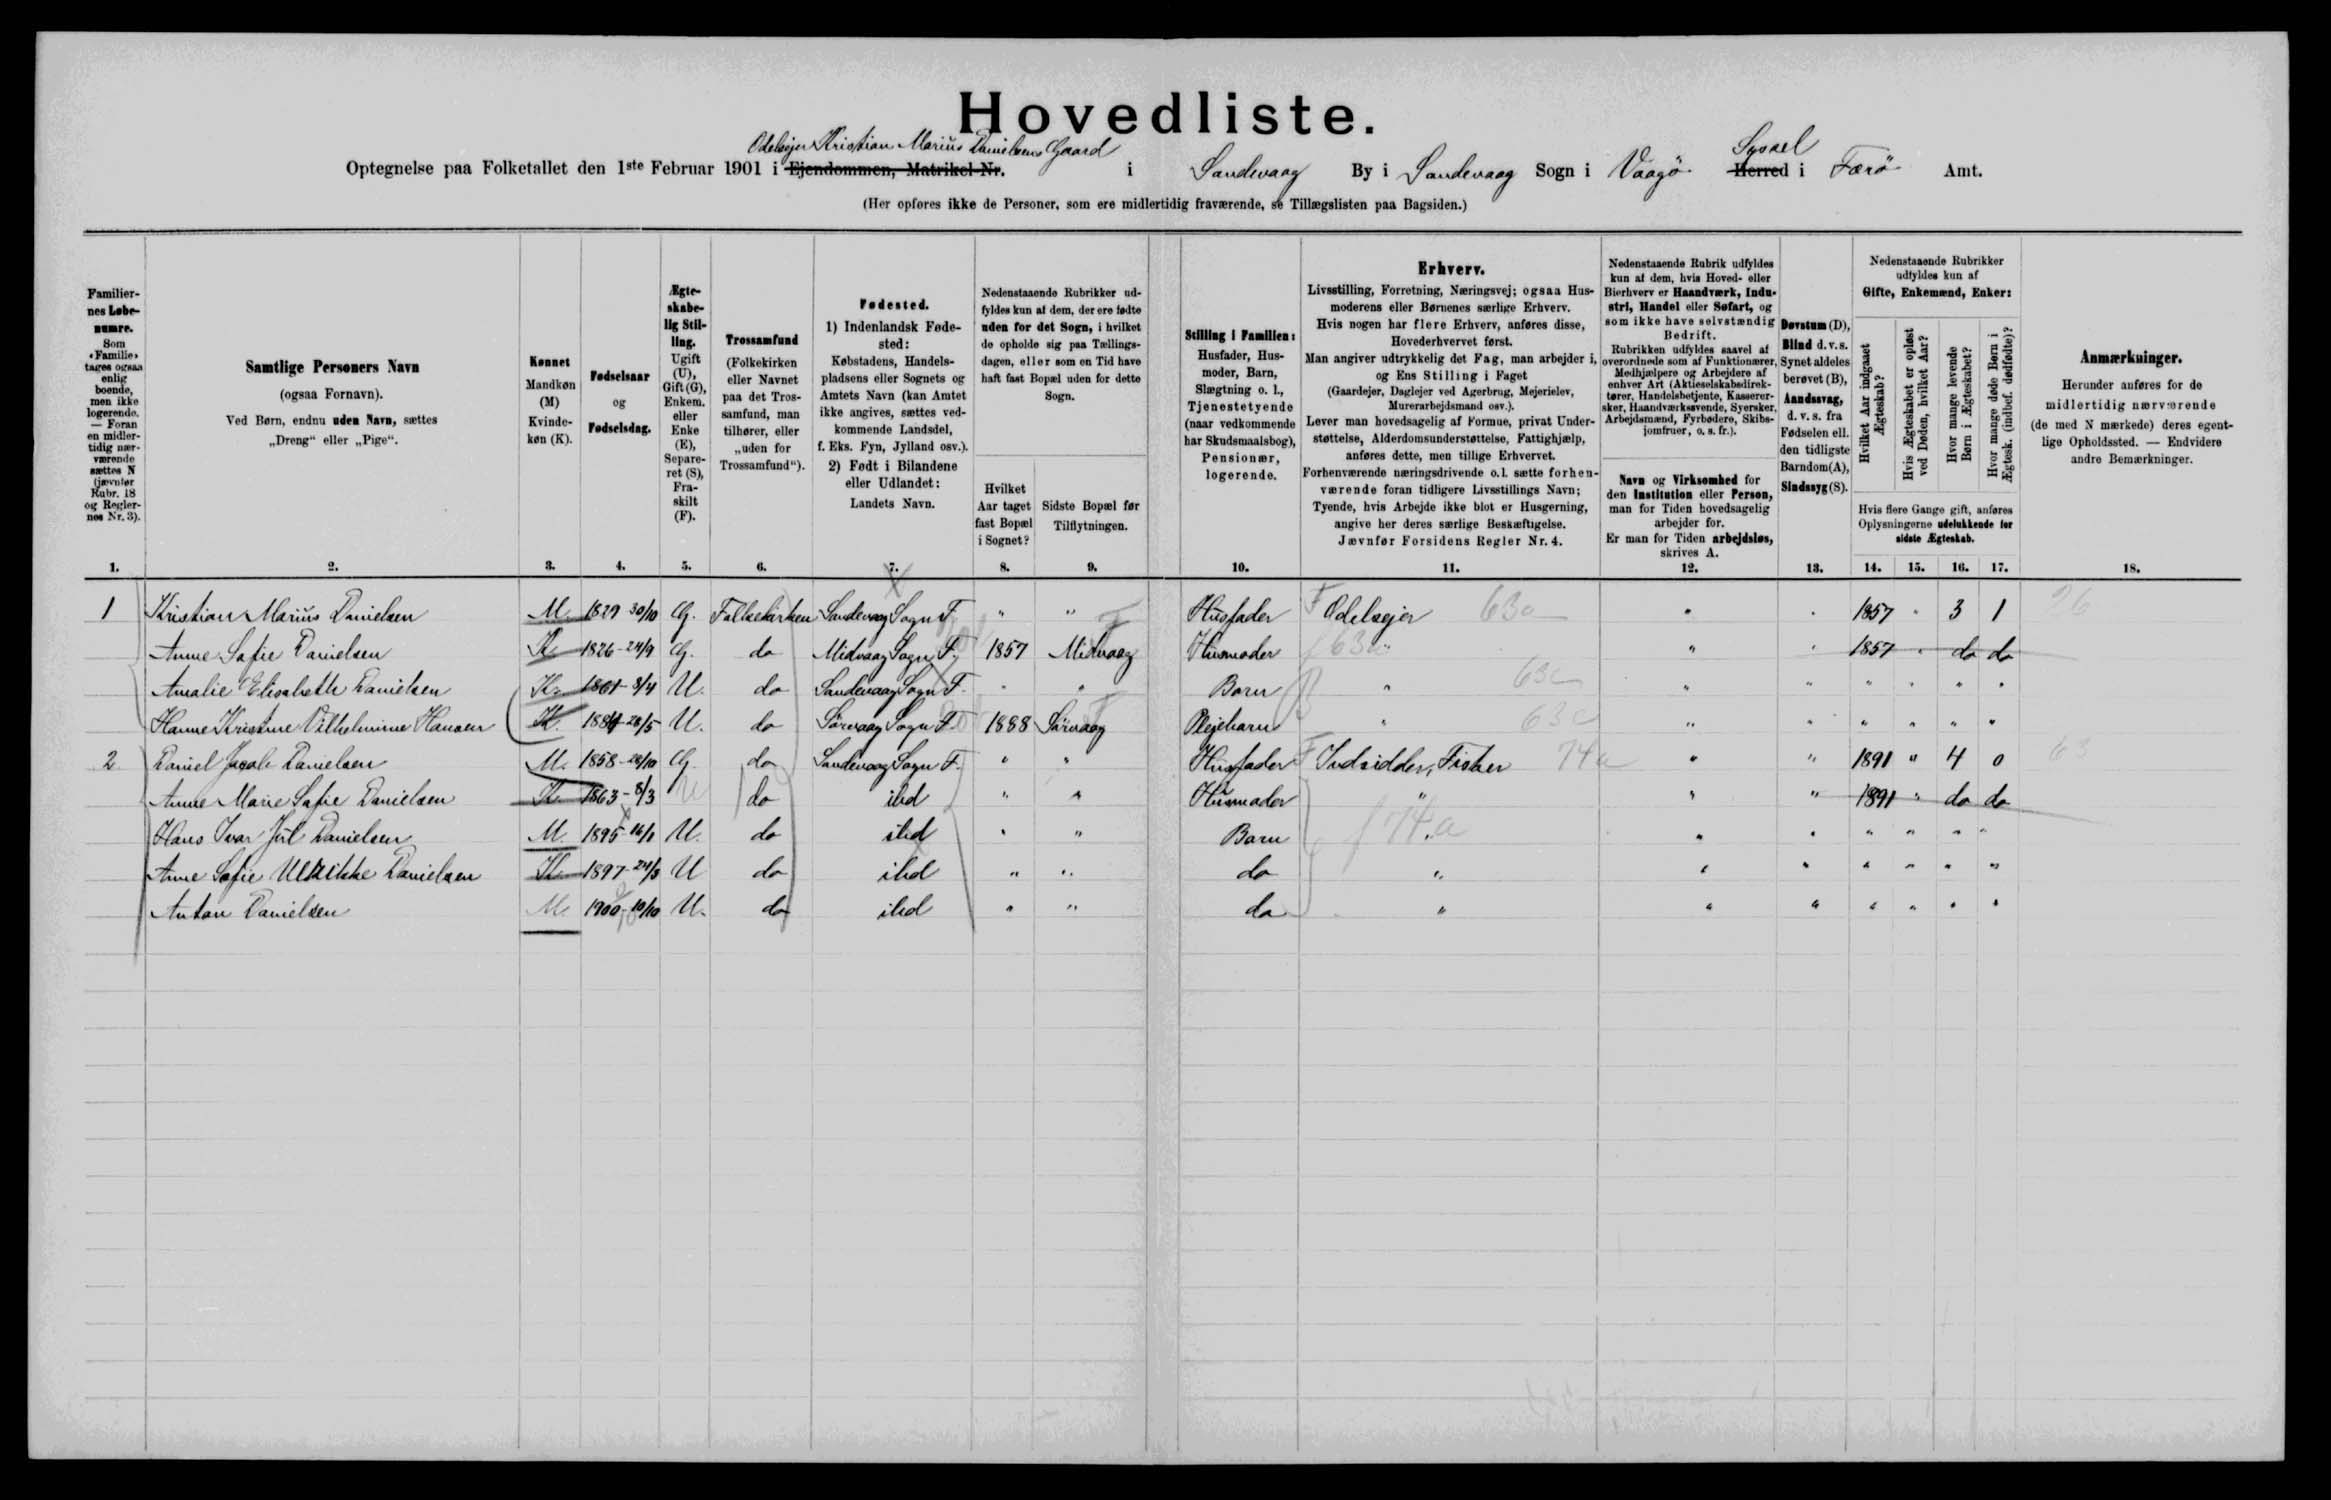 Hovedliste.
Odelsejer Kristian Marius Danielsens Gaard
Sysael
Optegnelse paa Folketallet den 1ste Februar 1901 i Ejendommen, Matrikel-Nr. i Sandevaag By i Sandevaag Sogn i Vaagø Herred i Færø Amt.
(Her opføres ikke de Personer, som ere midlertidig fraværende, se Tillægslisten paa Bagsiden.)
Familier-
nes Løbe-
numre.
Som
«Familie»
tages ogsaa
enlig
boende,
men ikke
logerende.
— Foran
en midler-
tidig nær-
værende
sættes N
(jævnfør
Rubr. 18
og Regler-
nes Nr. 3).
1.
Samtlige Personers Navn
(ogsaa Fornavn).
Ved Børn, endnu uden Navn, sættes
„Dreng“ eller „Pige“.
2.
Kønnet
Mandkøn
(M)
Kvinde-
køn (K).
3.
Fødselsaar
og
Fødselsdag.
4.
Ægte-
skabe-
lig Stil-
ling.
Ugift
(U),
Gift (G),
Enkem.
eller
Enke
(E),
Separe-
ret (S),
Fra-
skilt
(F).
5.
Trossamfund
(Folkekirken
eller Navnet
paa det Tros-
samfund, man
tilhører, eller
„uden for
Trossamfund“).
6.
Fødested.
1) Indenlandsk Føde-
sted:
Købstadens, Handels-
pladsens eller Sognets og
Amtets Navn (kan Amtet
ikke angives, sættes ved-
kommende Landsdel,
f. Eks. Fyn, Jylland osv.).
2) Født i Bilandene
eller Udlandet:
Landets Navn.
7.
Nedenstaaende Rubrikker ud-
fyldes kun af dem, der ere fødte
uden for det Sogn, i hvilket
de opholde sig paa Tællings-
dagen, eller som en Tid have
haft fast Bopæl uden for dette
Sogn.
Hvilket
Aar taget
fast Bopæl
i Sognet?
8.
Sidste Bopæl før
Tilflytningen.
9.
Stilling i Familien:
Husfader, Hus-
moder, Barn,
Slægtning o. l.,
Tjenestetyende
(naar vedkommende
har Skudsmaalsbog),
Pensionær,
logerende.
10.
Erhverv.
Livsstilling, Forretning, Næringsvej; ogsaa Hus-
moderens eller Børnenes særlige Erhverv.
Hvis nogen har flere Erhverv, anføres disse,
Hovederhvervet først.
Man angiver udtrykkelig det Fag, man arbejder i,
og Ens Stilling i Faget
(Gaardejer, Daglejer ved Agerbrug, Mejerielev,
Murerarbejdsmand osv.).
Lever man hovedsagelig af Formue, privat Under-
støttelse, Alderdomsunderstøttelse, Fattighjælp,
anføres dette, men tillige Erhvervet.
Forhenværende næringsdrivende o.l. sætte forhen-
værende foran tidligere Livsstillings Navn;
Tyende, hvis Arbejde ikke blot er Husgerning,
angive her deres særlige Beskæftigelse.
Jævnfør Forsidens Regler Nr. 4.
11.
Nedenstaaende Rubrik udfyldes
kun af dem, hvis Hoved- eller
Bierhverv er Haandværk, Indu-
stri, Handel eller Søfart, og
som ikke have selvstændig
Bedrift.
Rubrikken udfyldes saavel af
overordnede som af Funktionærer,
Medhjælpere og Arbejdere af
enhver Art (Aktieselskabsdirek-
tører, Handelsbetjente, Kasserer-
sker, Haandværkssvende, Syersker,
Arbejdsmænd, Fyrbødere, Skibs-
jomfruer, o. s. fr.).
Navn og Virksomhed for
den Institution eller Person,
man for Tiden hovedsagelig
arbejder for.
Er man for Tiden arbejdsløs,
skrives A.
12.
Døvstum (D),
Blind d. v. s.
Synet aldeles
berøvet (B),
Aandssvag,
d. v. s. fra
Fødselen ell.
den tidligste
Barndom (A),
Sindssyg (S).
13.
Nedenstaaende Rubrikker
udfyldes kun af
Gifte, Enkemænd, Enker:
Hvilket Aar indgaaet
Ægteskab?
Hvis Ægteskabet er opløst
ved Døden, hvilket Aar?
Hvor mange levende
Børn i Ægteskabet?
Hvor mange døde Børn i
Ægtesk. (indbef. dødfødte)?
Hvis flere Gange gift, anføres
Oplysningerne udelukkende for
sidste Ægteskab.
14. 15. 16. 17.
Anmærkninger.
Herunder anføres for de
midlertidig nærværende
(de med N mærkede) deres egent-
lige Opholdssted. — Endvidere
andre Bemærkninger.
18.
1 Kristian Marius Danielsen M. 1829 30/10 G. Folkekirken Sandevaag Sogn F. " " Husfader F Odelsejer 63a " " 1857 " 3 1 26
Anne Sofie Danielsen K. 1826-24/9 G. do Midvaag Sogn F. 1857 Midvaag Husmoder f 63a " " " 1857 " do do
Amalie Elisabeth Danielsen K. 1861-3/4 U. do Sandevaag Sogn F. " " Barn " 63c " " " " " "
Hanne Kristine Vilhelmine Hansen K. 1884-28/5 U. do Sørvaag Sogn F. 1888 Sørvaag Plejebarn " 63c " " " " " "
2. Daniel Jacob Danielsen M. 1858-28/10 G. do Sandevaag Sogn F. " " Husfader F Indsidder, Fisker 74a " " 1891 " 4 0 63
Anne Marie Sofie Danielsen K. 1863-8/3 U do ibd " " Husmoder " " " 1891 " do do
Hans Ivar Jul Danielsen M. 1895-16/1 U. do ibd " " Barn f 74a " " " " " " "
Anne Sofie Ulrikke Danielsen K. 1897-24/3 U do ibd " " do " " " " " " "
Anton Danielsen M. 1900-19/10 U. do ibd " " do " " " " " " "